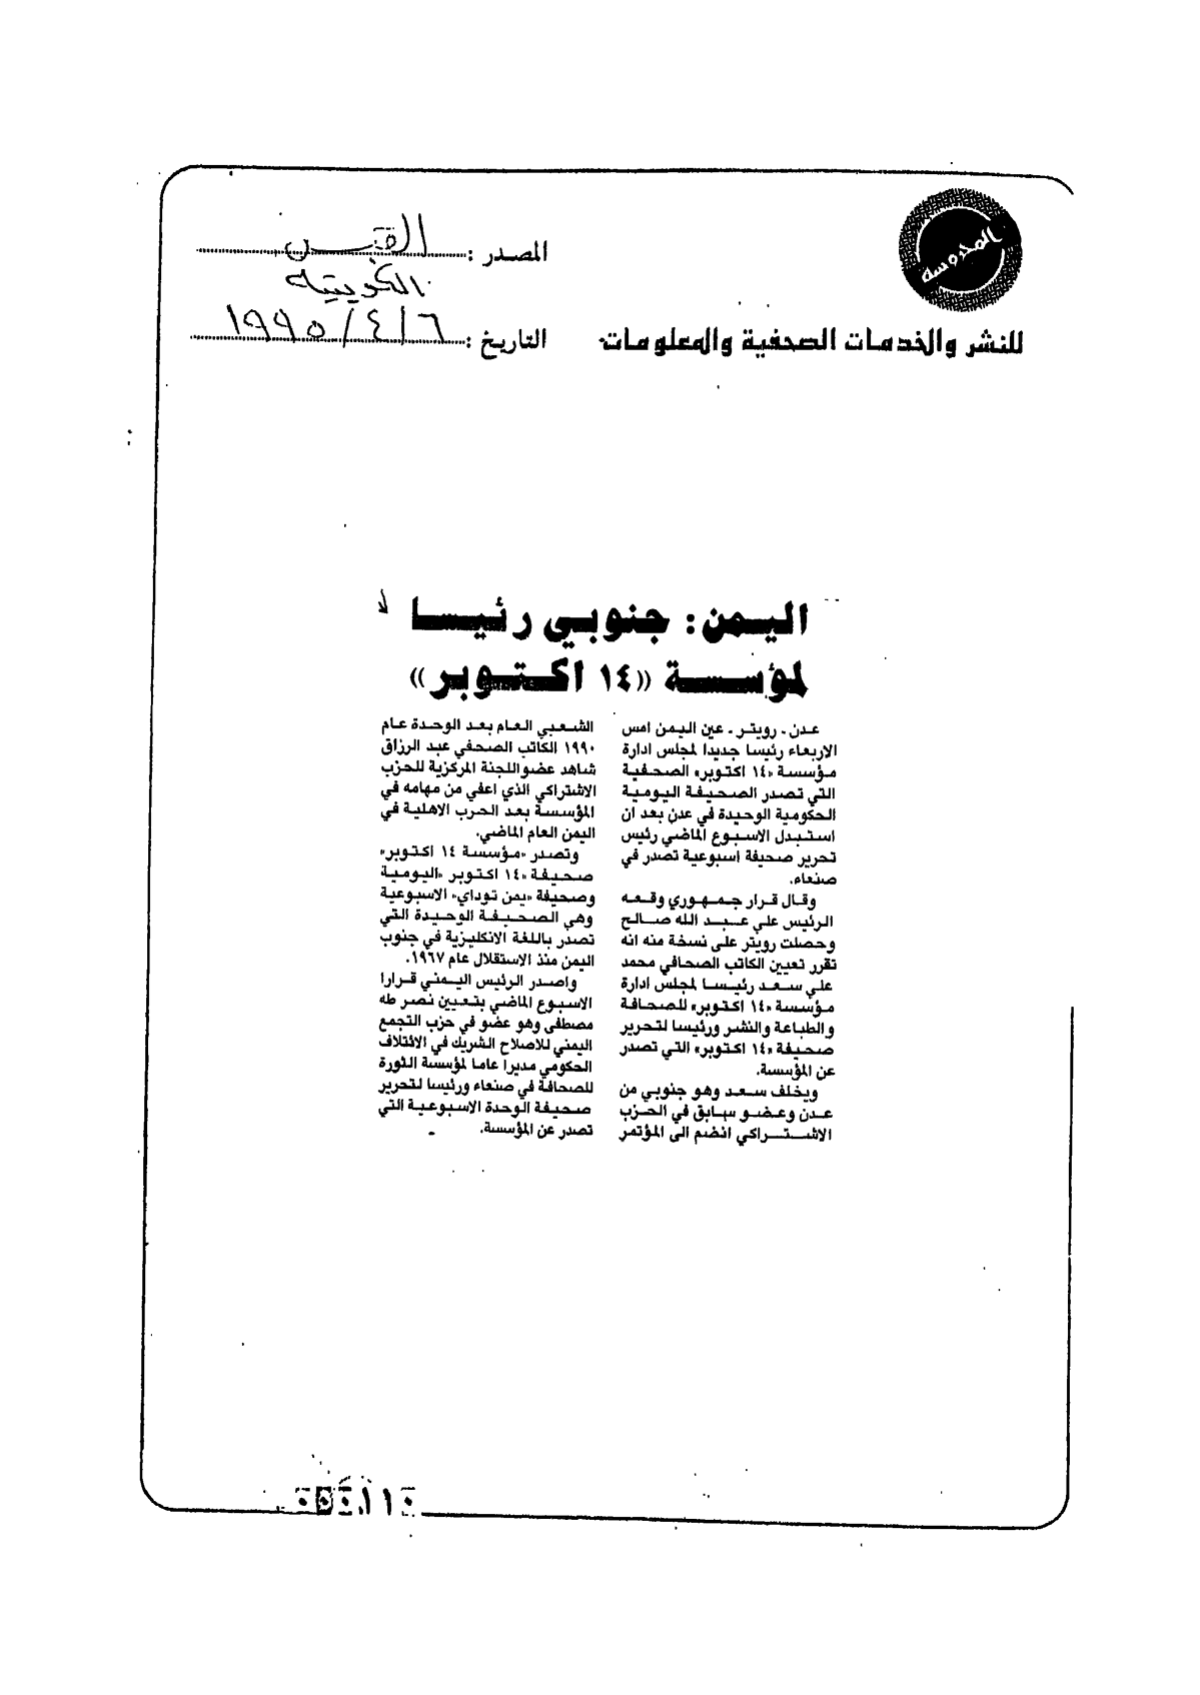 المحروسة
للنشر والخدمات الصحفية والمعلومات
المصدر : القبس
الكويتية
التاريخ : ٦ / ٤ / ١٩٩٥
اليمن: جنوبي رئيسا
لمؤسسة «١٤ اكتوبر»
عدن - رويتر - عين اليمن امس
الاربعاء رئيسا جديدا لمجلس ادارة
مؤسسة «١٤ اكتوبر» الصحفية
التي تصدر الصحيفة اليومية
الحكومية الوحيدة في عدن بعد ان
استبدل الاسبوع الماضي رئيس
تحرير صحيفة اسبوعية تصدر في
صنعاء.
وقال قرار جمهوري وقعه
الرئيس علي عبد الله صالح
وحصلت رويتر على نسخة منه انه
تقرر تعيين الكاتب الصحافي محمد
علي سعد رئيسا لمجلس ادارة
مؤسسة «١٤ اكتوبر» للصحافة
والطباعة والنشر ورئيسا لتحرير
صحيفة «١٤ اكتوبر» التي تصدر
عن المؤسسة.
ويخلف سعد وهو جنوبي من
عدن وعضو سابق في الحزب
الاشتراكي انضم الى المؤتمر
الشعبي العام بعد الوحدة عام
١٩٩٠ الكاتب الصحفي عبد الرزاق
شاهد عضو اللجنة المركزية للحزب
الاشتراكي الذي اعفي من مهامه في
المؤسسة بعد الحرب الاهلية في
اليمن العام الماضي.
وتصدر «مؤسسة ١٤ اكتوبر»
صحيفة «١٤ اكتوبر «اليومية
وصحيفة «يمن توداي» الاسبوعية
وهي الصحيفة الوحيدة التي
تصدر باللغة الانكليزية في جنوب
اليمن منذ الاستقلال عام ١٩٦٧.
واصدر الرئيس اليمني قرارا
الاسبوع الماضي بتعيين نصر طه
مصطفى وهو عضو في حزب التجمع
اليمني للاصلاح الشريك في الائتلاف
الحكومي مديرا عاما لمؤسسة الثورة
للصحافة في صنعاء ورئيسا لتحرير
صحيفة الوحدة الاسبوعية التي
تصدر عن المؤسسة.